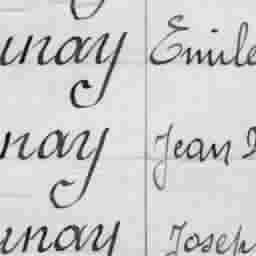 unay Emile
nay Jean
unay Joseph